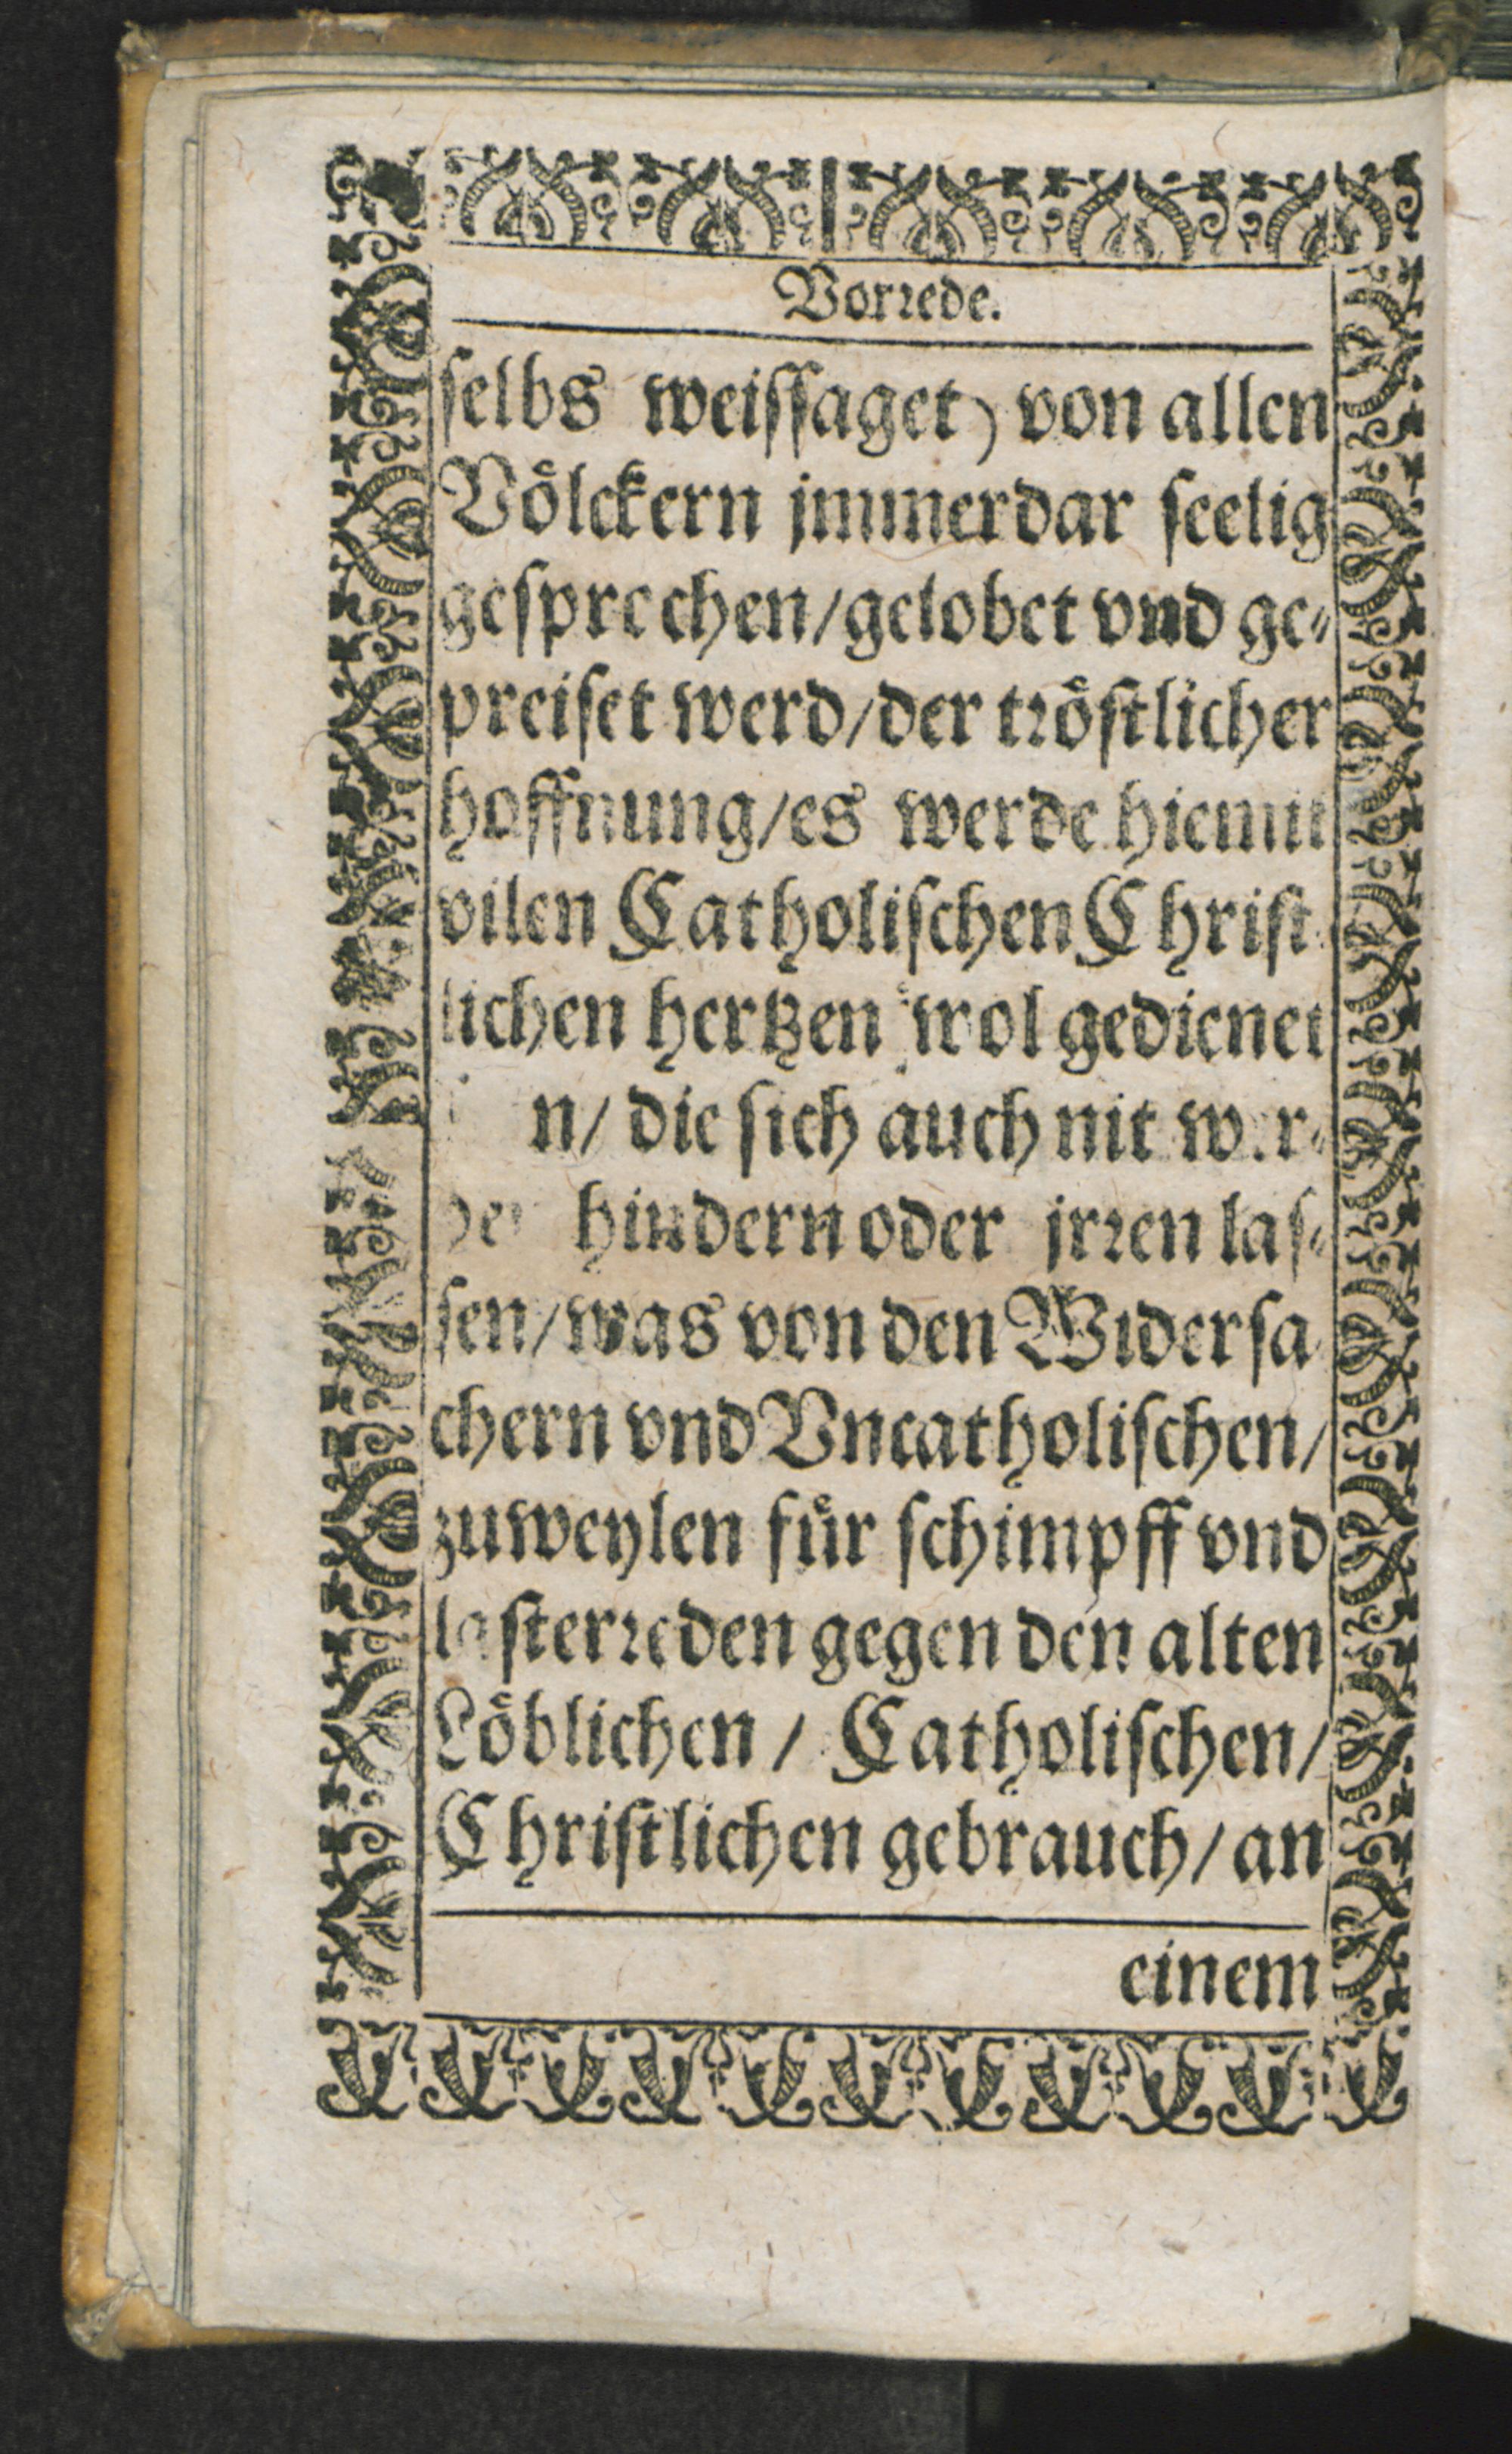 Vorrede.
selbs weissaget) von allen
Völckern jmmerdar seelig
gesprechen/gelobet vnd ge⸗
preiset werd/der tröstlicher
hoffnung/es werde hiemit
vilen Catholischen Christ
lichen hertzen wol gedienet
n/ die sich auch nit wer⸗
hindern oder jrren las⸗
sen/was von den Widersa
chern vnd Vncatholischen/
zuweylen für schimpff vnd
lasterreden gegen den alten
Löblichen/ Catholischen/
Christlichen gebrauch/an
einem